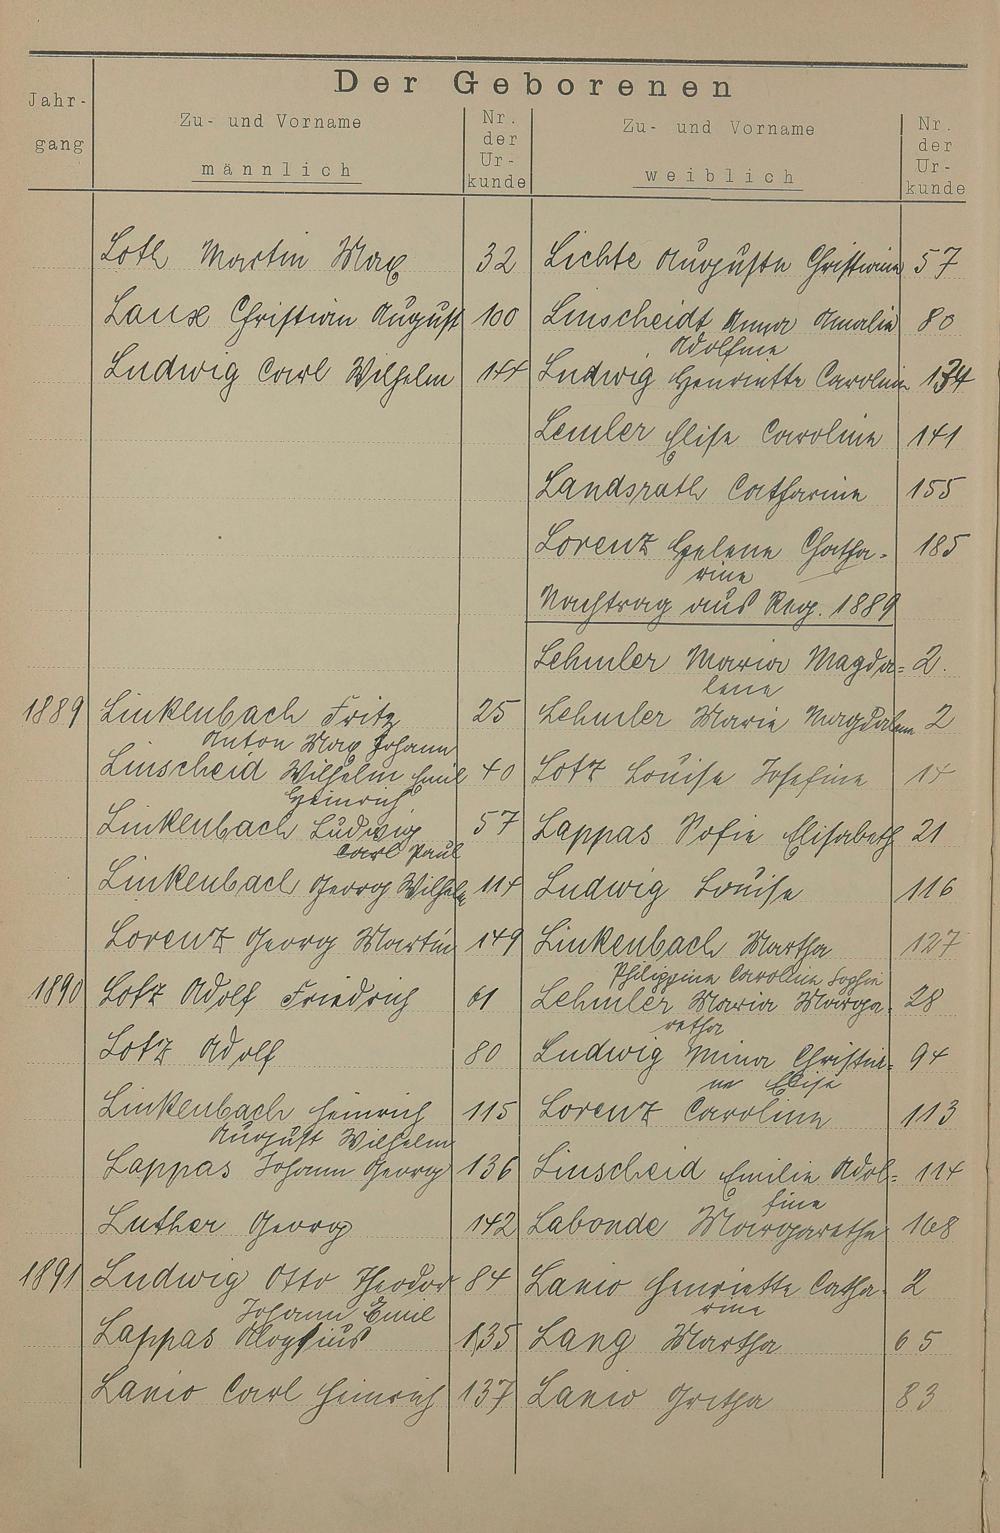 Der Geborenen
Jahr-
gang
Zu- und Vorname
männlich
Nr.
der
Ur-
kunde
Zu- und Vorname
weiblich
Nr.
der
Ur-
kunde
Loth Martin Max 32 Lichte Auguste Christiane 57
Laux Christian August 100 Linscheidt Anna Amalie 80
Adolfine
Ludwig Carl Wilhelm 144 Ludwig Henriette Caroline 134
Lemler Elise Caroline 141
Landsrath Catharine 155
Lorenz Helene Catha- 185
rine
Nachtrag aus Reg. 1889
Lehmler Maria Magda= 2.
lene
1889 Linkenbach Fritz 25 Lehmler Marie Magdalene 2
Anton Max Johann
Linscheid Wilhelm Emil 40 Lotz Louise Josefine 14
Heinrich
Linkenbach Ludwig 57 Lappas Sofie Elisabeth 21
Carl Paul
Linkenbach Georg Wilhelm 114 Ludwig Louise 116
Lorenz Georg Martin 149 Linkenbach Martha 127
Philippine Caroline Sophie
1890 Lotz Adolf Friedrich 61 Lehmler Maria Marga- 28
retha
Lotz Adolf 80 Ludwig Mina Christia= 94
ne Elise
Linkenbach Heinrich 115 Lorenz Caroline 113
August Wilhelm
Lappas Johann Georg 136 Linscheid Emilie Adol= 114
fine
Luther Georg 142 Labonde Margarethe 168
1891 Ludwig Otto Theodor 84 Lanio Henriette Catha- 2
Johann Emil rine
Lappas Aloysius 135 Lang Martha 65
Lanio Carl Heinrich 137 Lanio Gretha 83